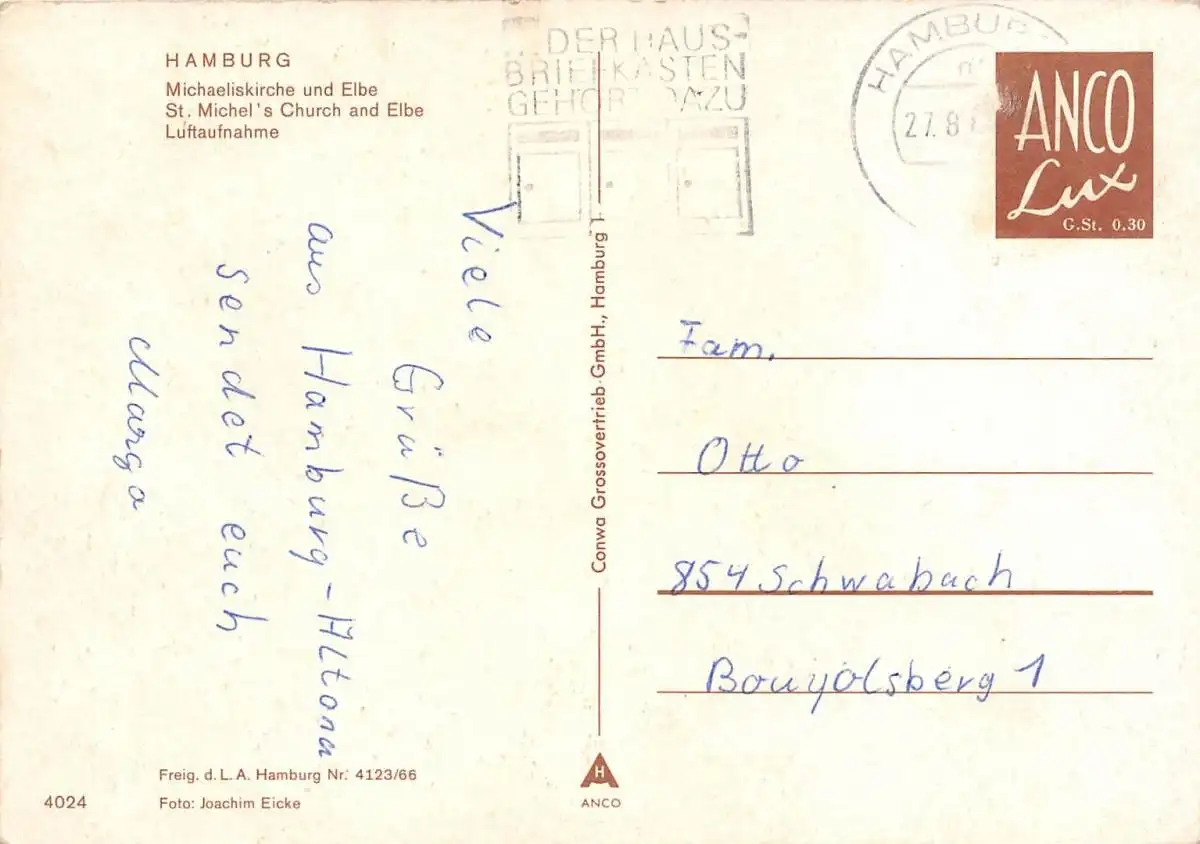 HAMBURG
Michaeliskirche und Elbe
St. Michel's Church and Elbe
Luftaufnahme
DER HAUS-
BRIEFKASTEN
GEHÖRT DAZU
HAMBURG
27.8
ANCO
Lux
G.St. 0.30
Viele
Grüße
aus Hamburg-Altona
sendet euch
Marga
Conwa Grossovertrieb GmbH., Hamburg 1
Fam.
Otto
854 Schwabach
1
Freig. d. L. A. Hamburg Nr. 4123/66
4024
Foto: Joachim Eicke
H
ANCO